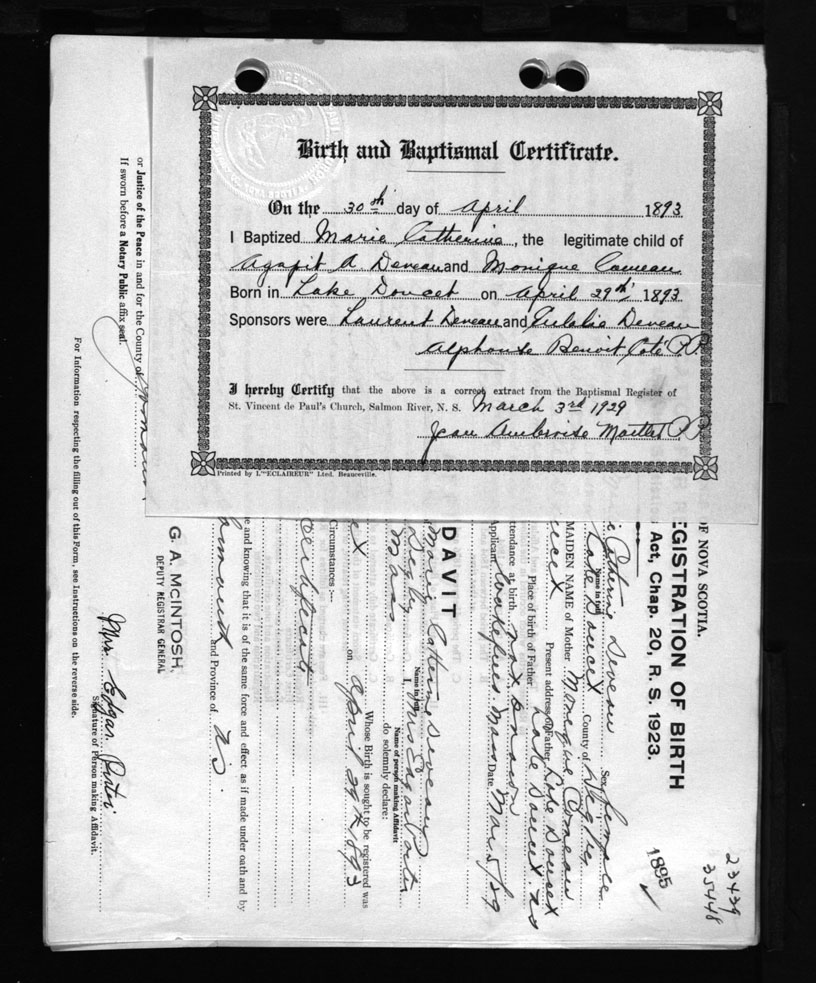 Birth and Baptismal Certificate.
On the 30th day of April 1893
I Baptized Marie Catherine, the legitimate child of
Agapit A Deveau and Monique Comeau
Born in Lake Doucet on April 29th 1893
Sponsors were Laurent Deveau and Eulalie Deveau
Alphonse Benoit Coté P.P.
I hereby Certify that the above is a correct extract from the Baptismal Register of
St. Vincent de Paul's Church, Salmon River, N. S. March 3rd 1929
Jean Ambroise P.P.
Printed by L'"ECLAIREUR" Lted. Beauceville.
OF NOVA SCOTIA.
EGISTRATION OF BIRTH
Act, Chap. 20, R. S. 1923.
23439
35448
1895
Catherine Deveau Sex female
Name in full
Lake Doucet County of Digby
MAIDEN NAME of Mother Monique Comeau
Present address of Father Lake Doucet
Place of birth of Father Lake Doucet NS
ttendance at birth not known
Applicant Wakefield Mass Date Mar 5/29
DAVIT
Marie Catherine Deveau
Name in full
Digby I, Mrs Edgar Porter
Name of person making Affidavit
Mass do solemnly declare:
Whose Birth is sought to be registered was
on April 29th 1893
Circumstances:—
Certificate
e and knowing that it is of the same force and effect as if made under oath and by
and Province of N.S.
G. A. McINTOSH,
DEPUTY REGISTRAR GENERAL
Mrs. Edgar Porter
Signature of Person making Affidavit.
or Justice of the Peace in and for the County of
If sworn before a Notary Public affix seal.
For Information respecting the filling out of this Form, see Instructions on the reverse side.